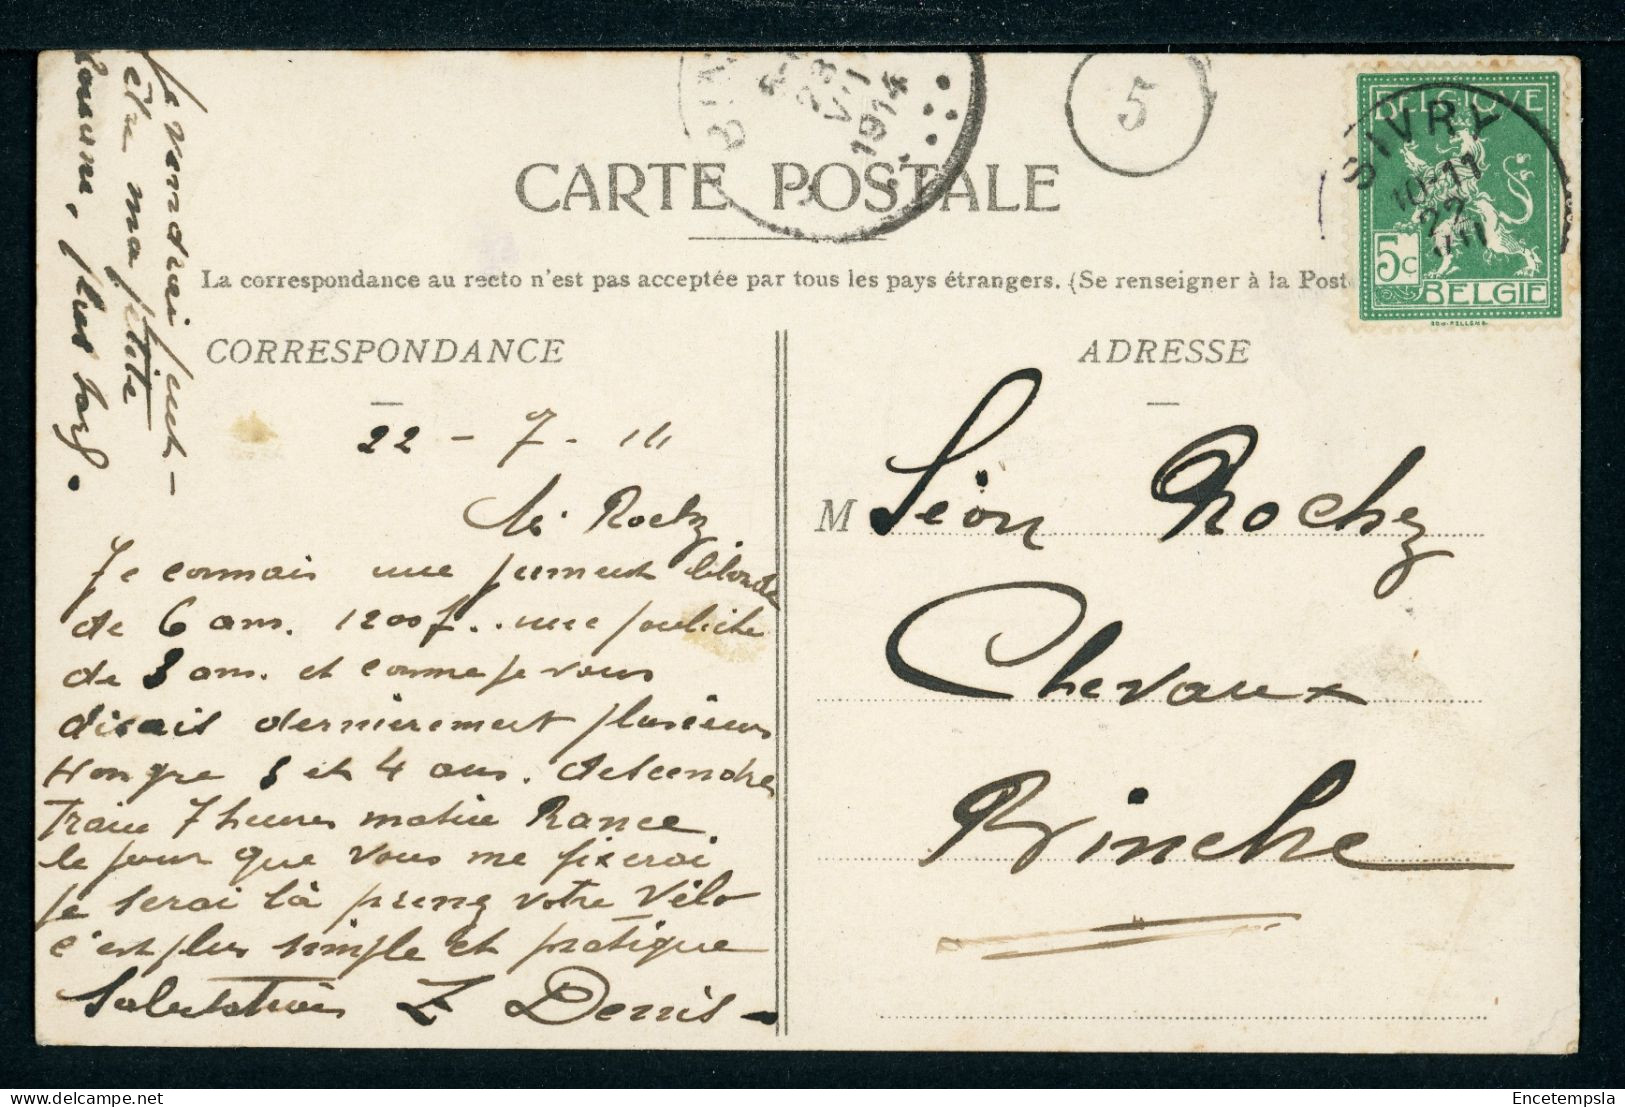 CARTE POSTALE
La correspondance au recto n'est pas acceptée par tous les pays étrangers. (Se renseigner à la Post
CORRESPONDANCE
22 - 7 - 14
Mr Rochz
Je connais une jument blonde
de 6 ans. 1200 f.. une pouliche
de 3 ans. et comme je vous
disais dernierement plusieurs
Hongre 3 et 4 ans. descendre
Train 7 heures matin Rance.
le jour que vous me fixerai
je serai là preng votre Vélo
c'est plus simple et pratique
Salutations Z Denis
Je vendrai peut-
être ma petite
brune, plus tard.
ADRESSE
M Léon Rochez
Chevaux
Binche
BELGIQUE
5c
BELGIË
SIVRY
10-11
22
VII
23
VII
1914
5
delcampe.net
Encetempsla